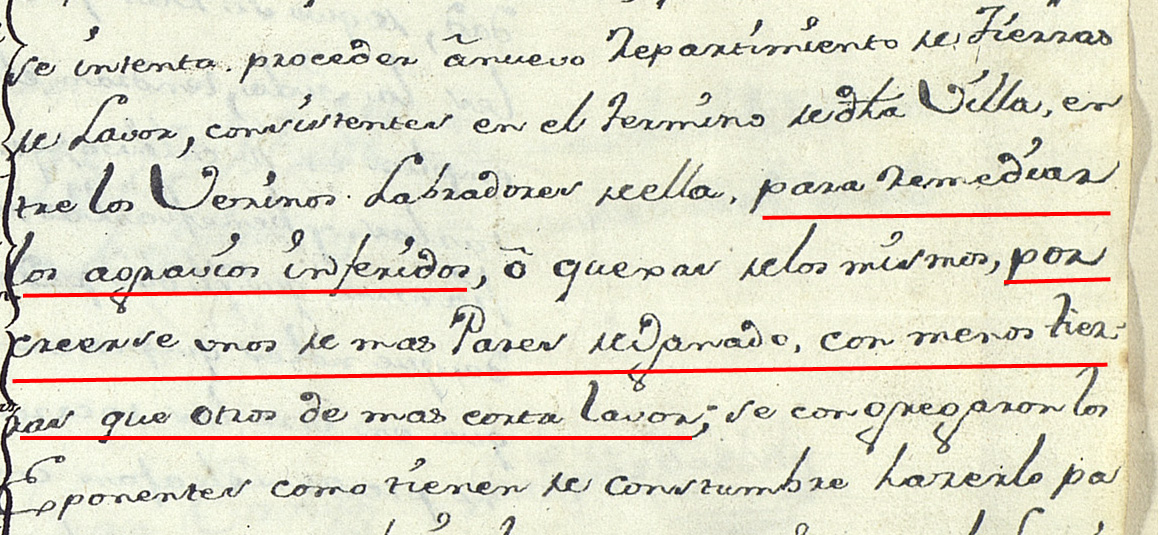 se intenta proceder â nuevo Repartimiento de Tierras
de Lavor, consistentes en el termino de dha Villa, en
tre los Vecinos Labradores de ella, para remediar
los agravios inferidos, ô quexas de los mismos, por
creerse unos de mas Pares de Ganado, con menos tier-
ras que otros de mas corta lavor; se congregaron los
Exponentes como tienen de constumbre hazerlo pa